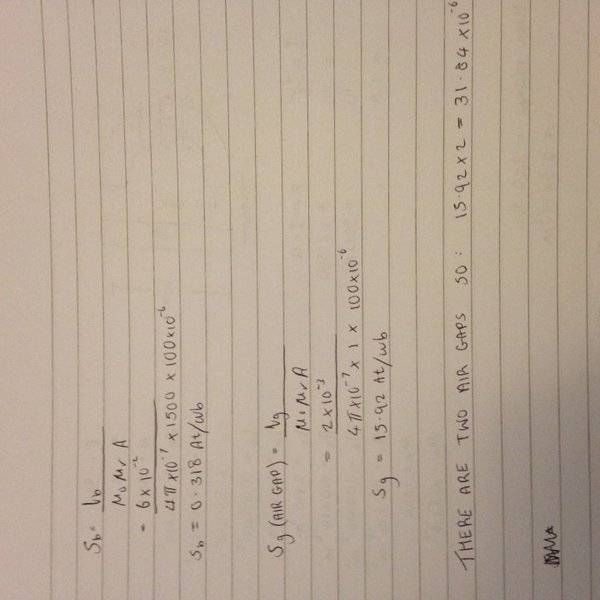 S_b = l_b
μ₀ μr A
= 6 × 10⁻²
4π×10⁻⁷ × 1500 × 100×10⁻⁶
S_b = 0.318 At/wb
S_g (AIR GAP) = l_g
μ₀ μr A
= 2×10⁻³
4π×10⁻⁷ × 1 × 100×10⁻⁶
S_g = 15.92 At/wb
THERE ARE TWO AIR GAPS SO: 15.92 × 2 = 31.84 ×10⁻⁶